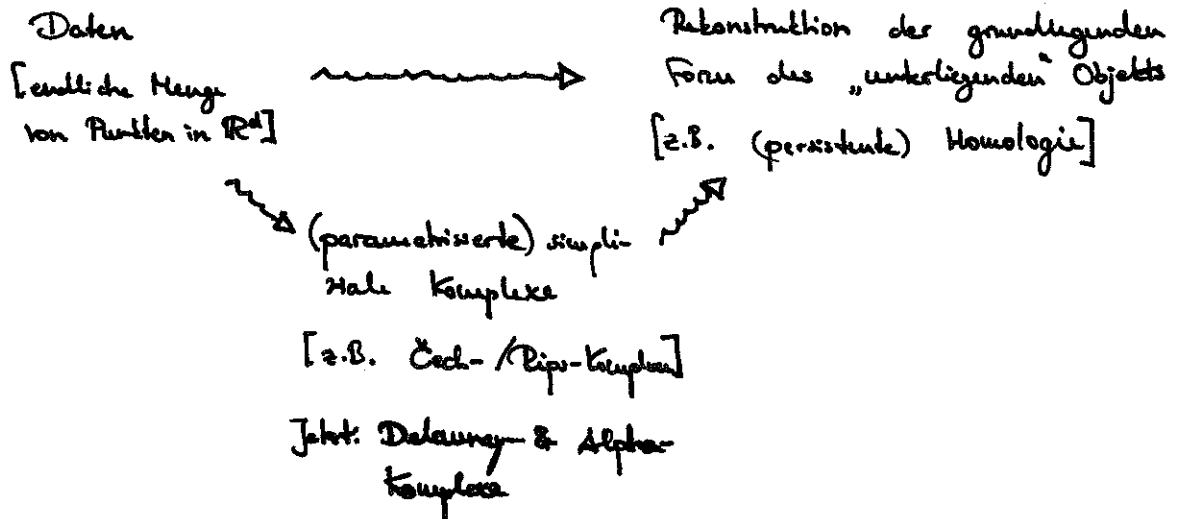 Daten
[endliche Menge
von Punkten in ℝᵈ]
Rekonstruktion der grundlegenden
Form des „unterliegenden“ Objekts
[z.B. (persistente) Homologie]
(parametrisierte) simpli-
ziale Komplexe
[z.B. Čech-/Rips-Komplexe]
Jetzt: Delaunay- & Alpha-
Komplexe